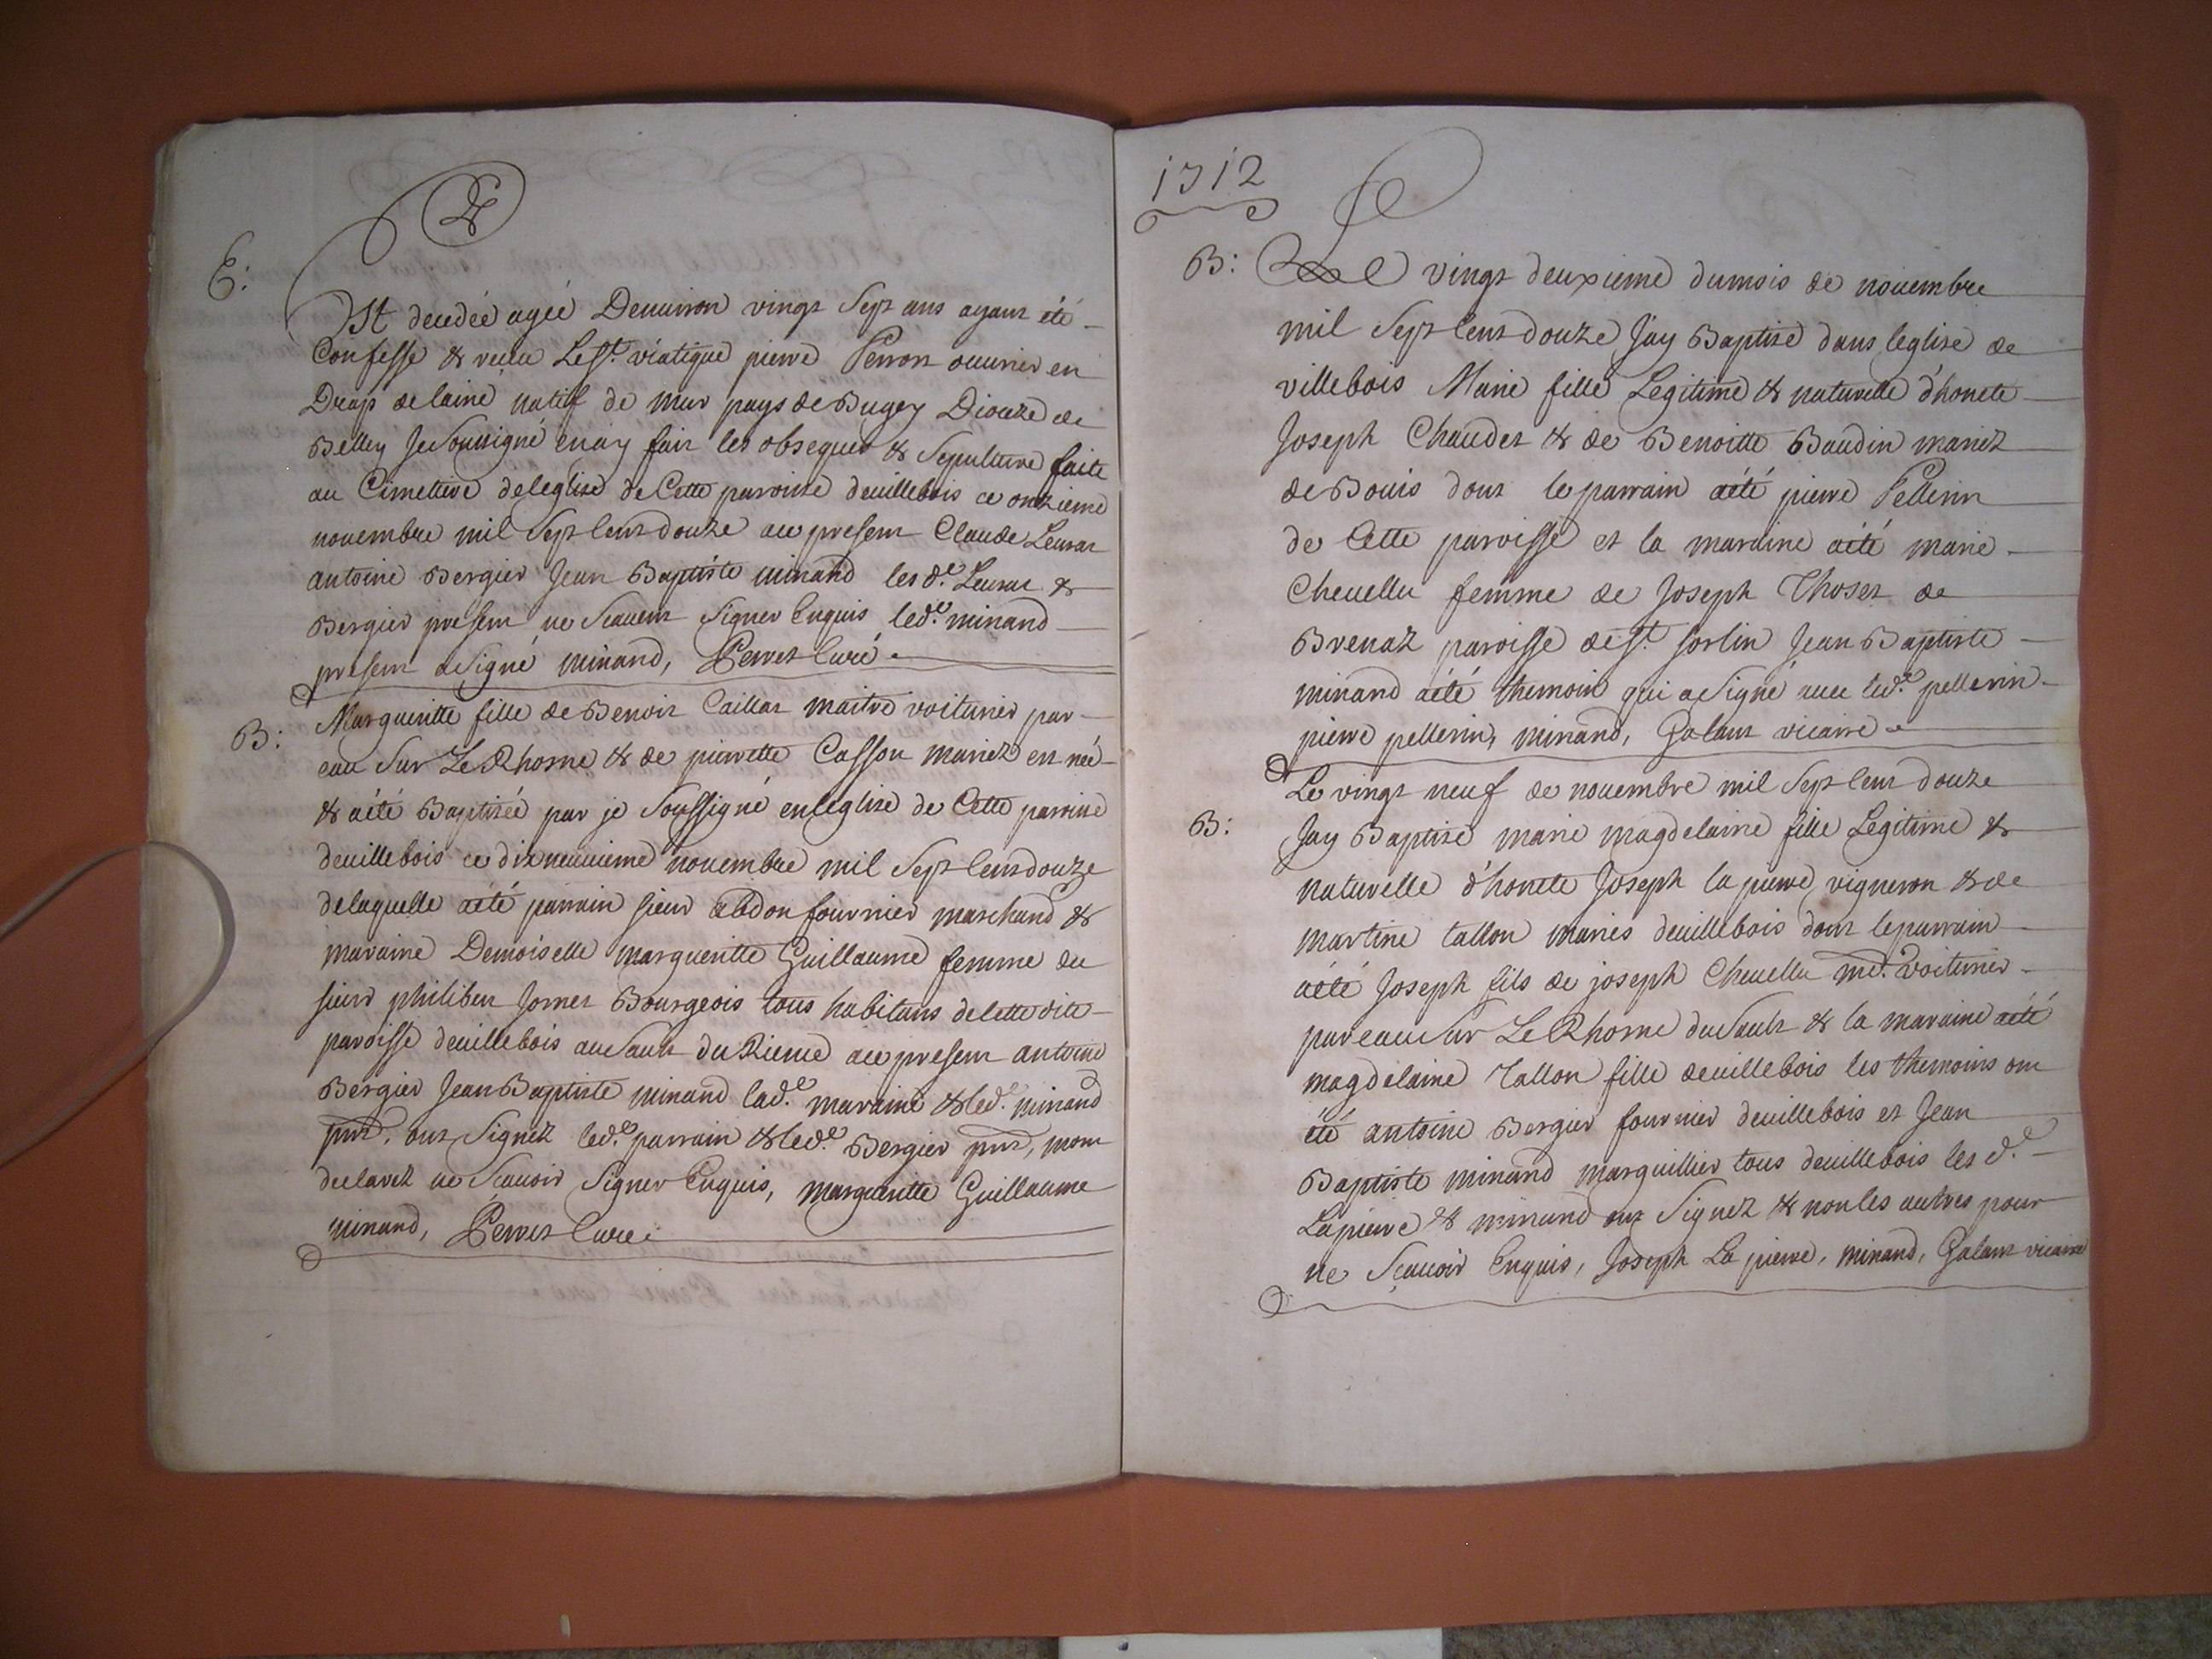 E:
Est decedée agée Denuiron vingt Sept ans ayant été
Confesse & reçeu Le St. viatique pierre Perron ouurier en
Drap de laine natif de mur pays de Bugey Dioceze de
Belley Je Soussigné en ay fait les obseques & Sepulture faite
au Cimettiere de leglise de Cette paroisse de uillebois ce onzieme
nouembre mil Sept Cent douze au present Claude Leurat
antoine Bergier Jean Baptiste minand les de. Leurat &
Bergier present ne Scauent Signer Enquis led.e minand
present a Signé minand, Perret Curé.
B:
Margueritte fille de Benoit Caillat maitre voiturier par
eau Sur Le Rhosne & de pierrette Casson mariez est née
& a été Baptisée par je Soussigné en leglise de Cette paroisse
de uillebois ce dix neuuieme nouembre mil Sept Cent douze
de laquelle a été parrain sieur abdon fournier marchand &
maraine Demoiselle margueritte Guillaume femme du
sieur philibert Jornet Bourgeois tous habitans de Cette dite
paroisse de uillebois au Sault du Rieme au present antoine
Bergier Jean Baptiste minand lad.e maraine & led.e minand
pnt. ont Signez led.e parrain & led.e Bergier pnt, mont
declarez ne Scauoir Signer Enquis, margueritte Guillaume
minand, Perret Curé.
1712
B:
Le vingt deuxieme du mois de nouembre
mil Sept Cent douze Jay Baptisé dans leglise de
villebois Marie fille Legitime & naturelle d'honete
Joseph Chaudet & de Benoitte Baudin mariez
de Bouis dont le parrain a été pierre Pellerin
de Cette paroisse et la maraine a été marie
Cheuellu femme de Joseph Thoset de
Brenaz paroisse de St. Sorlin Jean Baptiste
minand a été themoin qui a Signé auec led.e pellerin
pierre pellerin, minand, Galant vicaire
Le vingt neuf de nouembre mil Sept Cent douze
B:
Jay Baptisé marie magdelaine fille Legitime &
naturelle d'honete Joseph la pierre vigneron & de
martine tallon mariés de uillebois dont le parrain
a été Joseph fils de joseph Cheuellu md. Voiturier
par eau Sur Le Rhosne du Sault & la maraine a été
magdelaine Tallon fille de uillebois les themoins ont
été antoine Bergier fournier de uillebois et Jean
Baptiste minand marguillier tous de uillebois les d.e
Lapierre & minand ont Signez & non les autres pour
ne Sçauoir Enquis, Joseph La pierre, minand, Galant vicaire